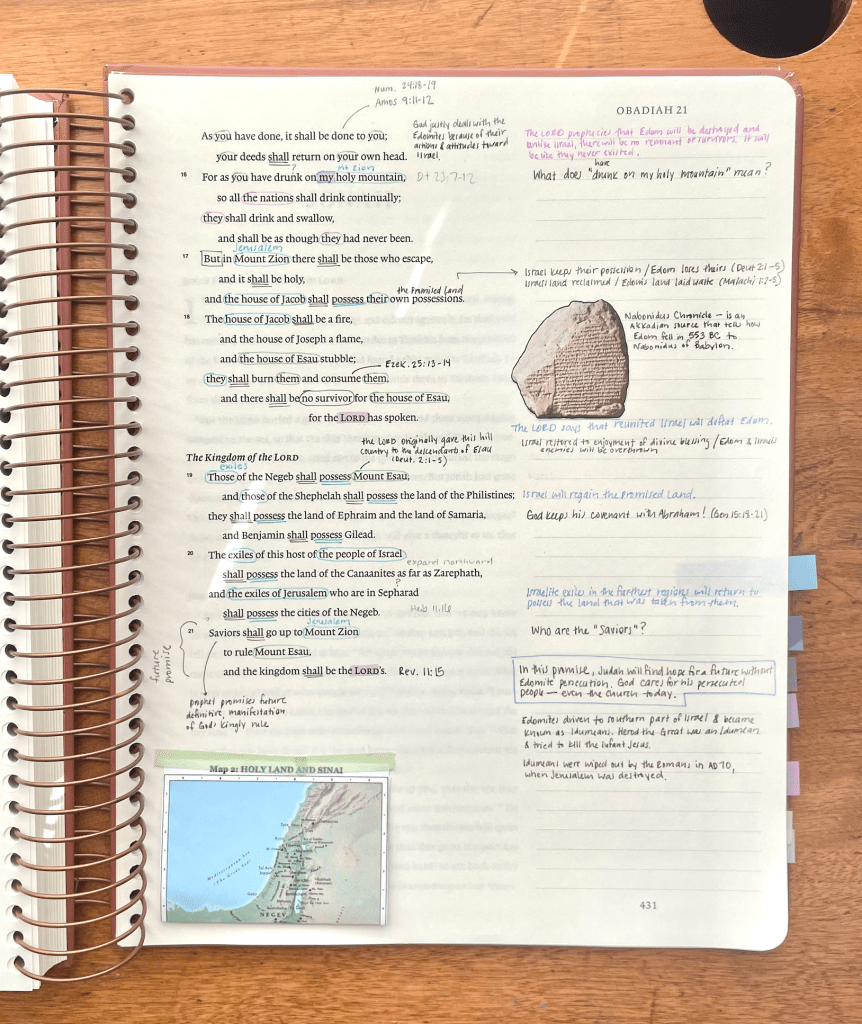 Num. 24:18-19
Amos 9:11-12
OBADIAH 21
As you have done, it shall be done to you;
your deeds shall return on your own head.
God justly deals with the
Edomites because of their
actions & attitudes toward
Israel.
The LORD prophecies that Edom will be destroyed and
unlike Israel, there will be no remnant or survivors. It will
be like they never existed.
?
Mt Zion
16 For as you have drunk on my holy mountain,
Dt 23:7-12
have
What does "drunk on my holy mountain" mean?
so all the nations shall drink continually;
they shall drink and swallow,
and shall be as though they had never been.
Jerusalem
17 But in Mount Zion there shall be those who escape,
and it shall be holy,
the Promised Land
and the house of Jacob shall possess their own possessions.
Israel keeps their possession / Edom loses theirs (Deut 2:1-5)
Israel's land reclaimed / Edom's land laid waste (Malachi 1:2-5)
18 The house of Jacob shall be a fire,
and the house of Joseph a flame,
and the house of Esau stubble;
Ezek. 25:13-14
they shall burn them and consume them,
and there shall be no survivor for the house of Esau,
for the LORD has spoken.
Nabonidus Chronicle - is an
Akkadian source that tells how
Edom fell in 553 BC to
Nabonidus of Babylon.
The LORD says that reunited Israel will defeat Edom.
Israel restored to enjoyment of divine blessing / Edom & Israel's
enemies will be overthrown
The Kingdom of the LORD
the Lord originally gave this hill
country to the descendants of Esau
(Deut. 2:1-5)
exiles
19 Those of the Negeb shall possess Mount Esau,
and those of the Shephelah shall possess the land of the Philistines;
Israel will regain the Promised Land.
they shall possess the land of Ephraim and the land of Samaria,
God keeps his covenant with Abraham! (Gen 15:18-21)
and Benjamin shall possess Gilead.
20 The exiles of this host of the people of Israel
expand northward
shall possess the land of the Canaanites as far as Zarephath,
?
and the exiles of Jerusalem who are in Sepharad
Israelite exiles in the farthest regions will return to
possess the land that was taken from them.
shall possess the cities of the Negeb.
Heb 11:16
Jerusalem
21 Saviors shall go up to Mount Zion
Who are the "Saviors"?
to rule Mount Esau,
and the kingdom shall be the LORD's.
Rev. 11:15
future
promise
prophet promises future
definitive, manifestation
of God's kingly rule
In this promise, Judah will find hope for a future without
Edomite persecution. God cares for his persecuted
people — even the church today.
Edomites driven to southern part of Israel & became
known as Idumeans. Herod the Great was an Idumean
& tried to kill the infant Jesus.
Idumeans were wiped out by the Romans in AD 70,
when Jerusalem was destroyed.
Map 2: HOLY LAND AND SINAI
Mediterranean Sea
(The Great Sea)
NEGEV
431